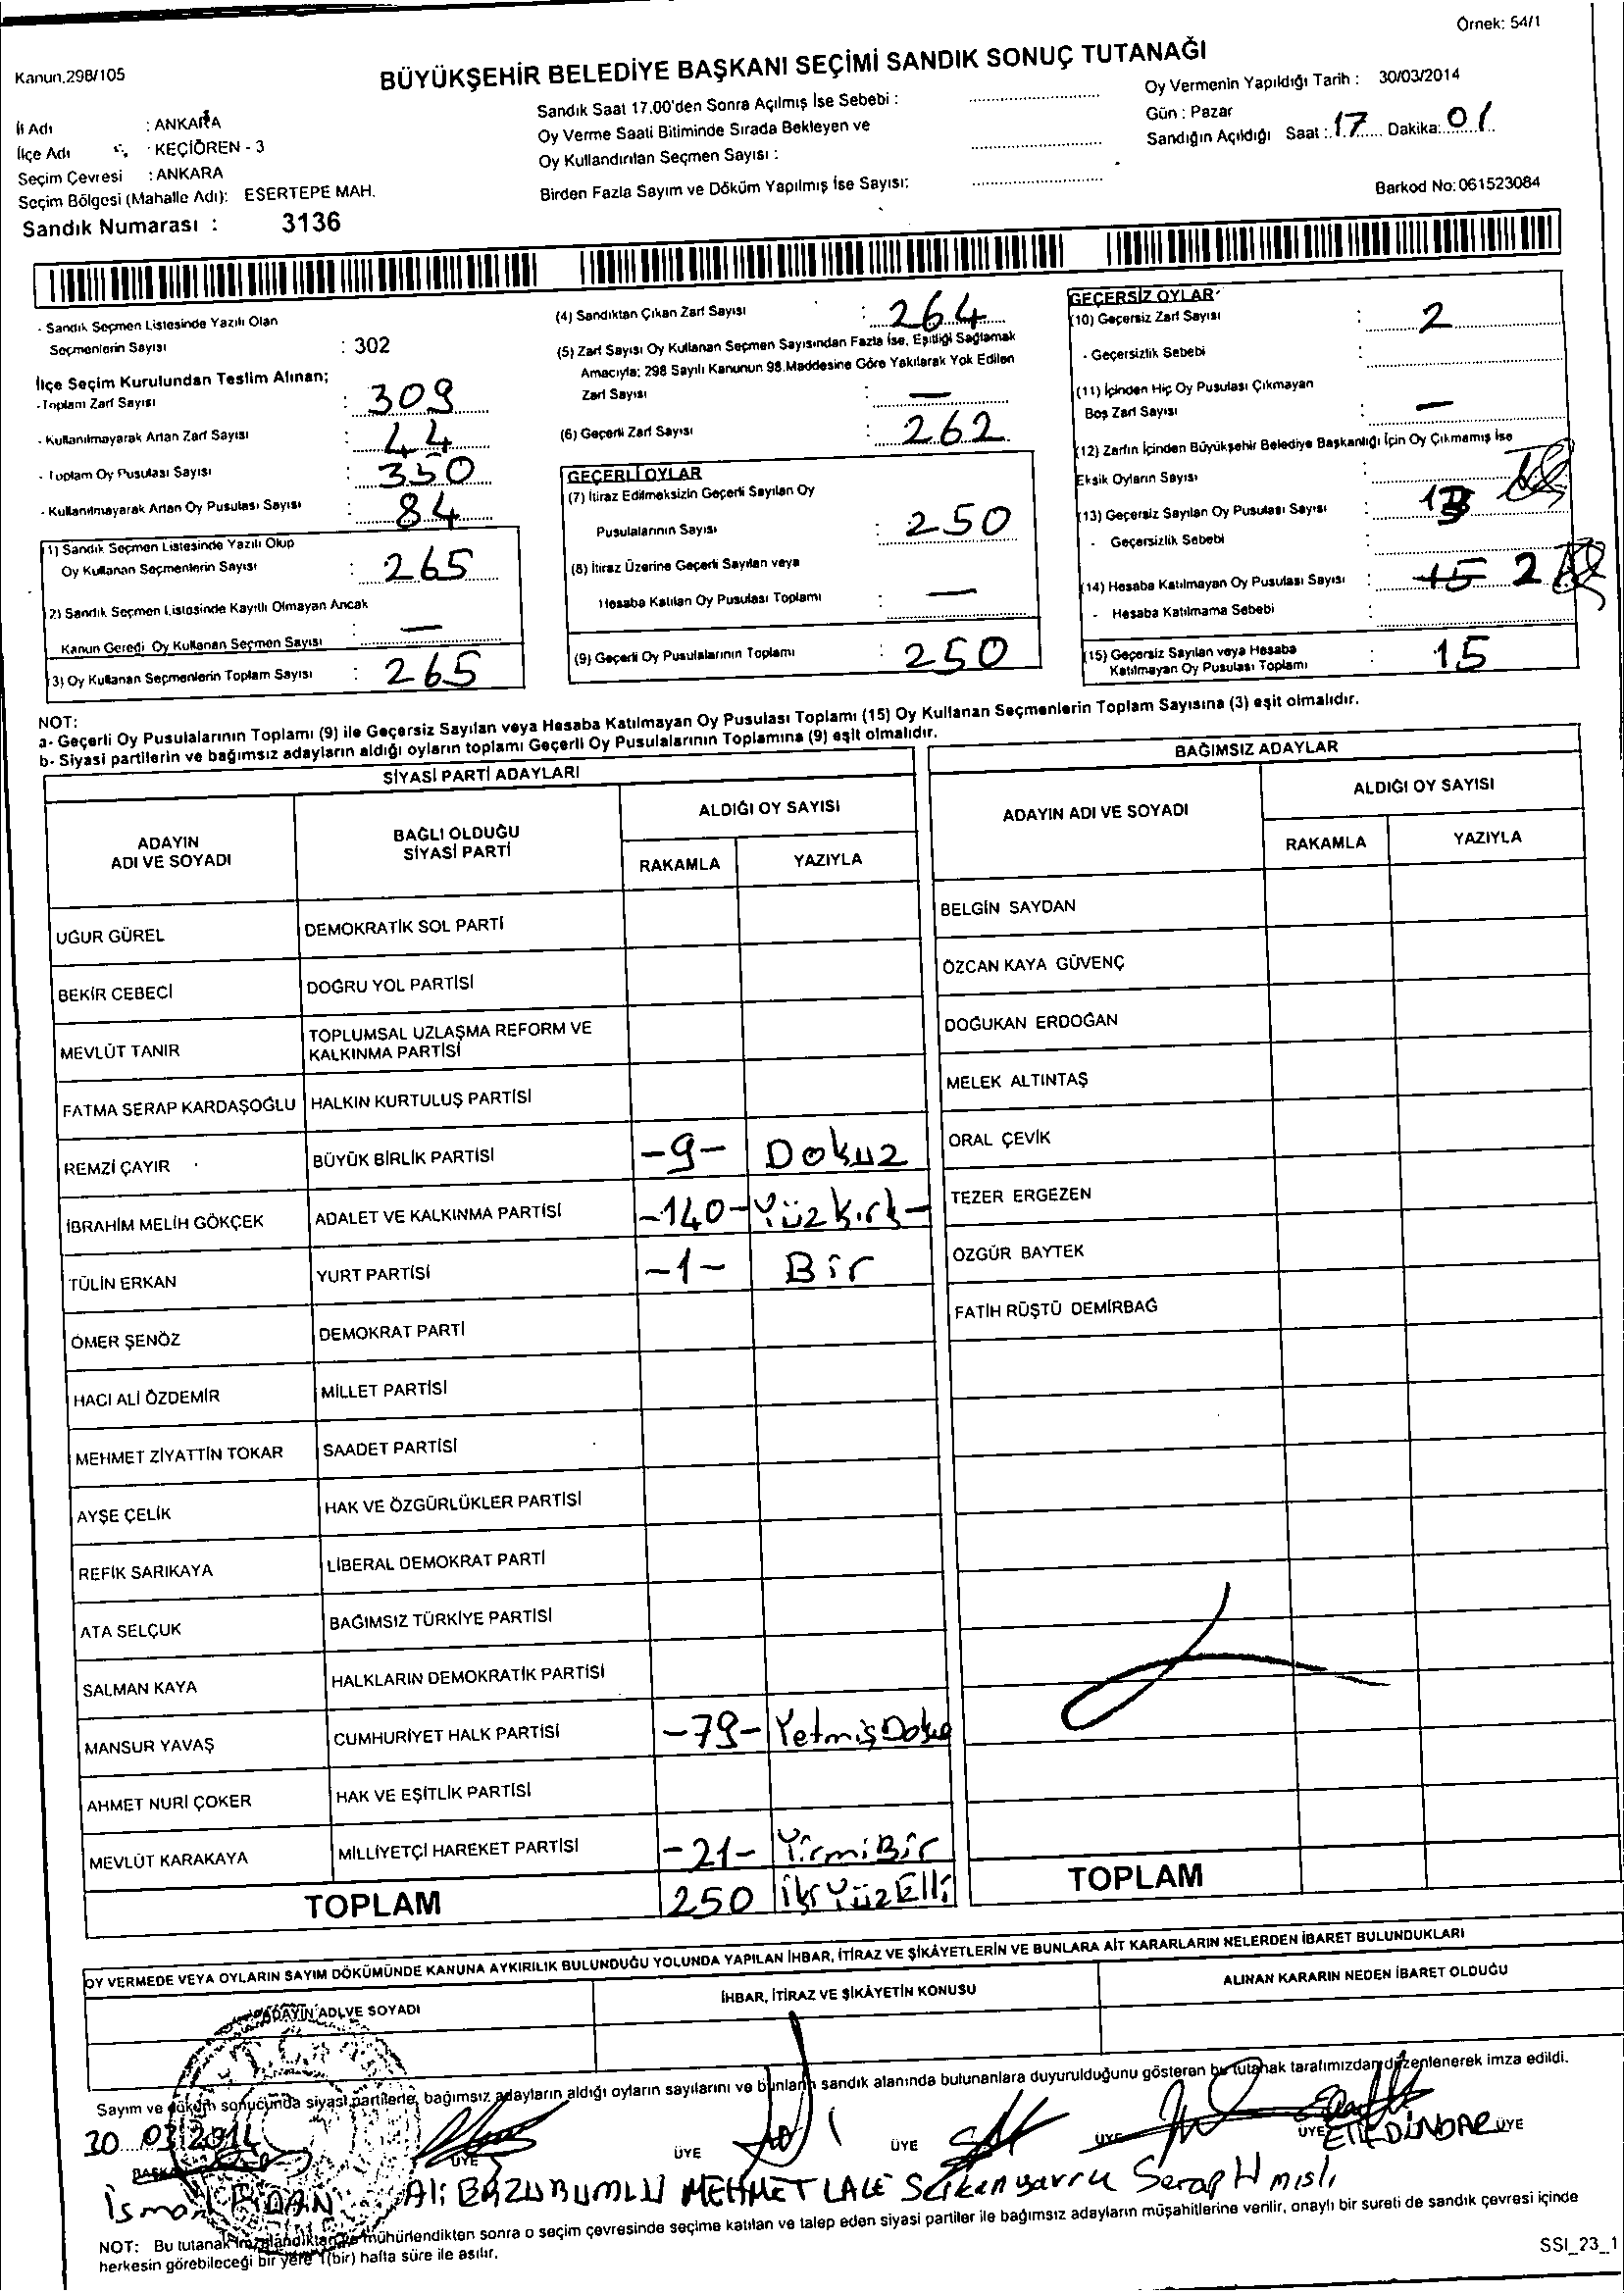 Örnek: 54/1
Kanun.298/105
BÜYÜKŞEHİR BELEDİYE BAŞKANI SEÇİMİ SANDIK SONUÇ TUTANAĞI
İl Adı : ANKARA
İlçe Adı : KEÇİÖREN - 3
Seçim Çevresi : ANKARA
Seçim Bölgesi (Mahalle Adı): ESERTEPE MAH.
Sandık Numarası : 3136
Sandık Saat 17.00'den Sonra Açılmış İse Sebebi :
Oy Verme Saati Bitiminde Sırada Bekleyen ve
Oy Kullandırılan Seçmen Sayısı :
Birden Fazla Sayım ve Döküm Yapılmış İse Sayısı:
Oy Vermenin Yapıldığı Tarih : 30/03/2014
Gün : Pazar
Sandığın Açıldığı Saat : 17 Dakika: 01
Barkod No: 061523084
- Sandık Seçmen Listesinde Yazılı Olan
Seçmenlerin Sayısı : 302
İlçe Seçim Kurulundan Teslim Alınan;
-Toplam Zarf Sayısı : 309
- Kullanılmayarak Artan Zarf Sayısı : 44
- Toplam Oy Pusulası Sayısı : 350
- Kullanılmayarak Artan Oy Pusulası Sayısı : 84
(1) Sandık Seçmen Listesinde Yazılı Olup
Oy Kullanan Seçmenlerin Sayısı : 265
(2) Sandık Seçmen Listesinde Kayıtlı Olmayan Ancak
Kanun Gereği Oy Kullanan Seçmen Sayısı : —
(3) Oy Kullanan Seçmenlerin Toplam Sayısı : 265
(4) Sandıktan Çıkan Zarf Sayısı : 264
(5) Zarf Sayısı Oy Kullanan Seçmen Sayısından Fazla İse, Eşitliği Sağlamak
Amacıyla; 298 Sayılı Kanunun 98.Maddesine Göre Yakılarak Yok Edilen
Zarf Sayısı : —
(6) Geçerli Zarf Sayısı : 262
GEÇERLİ OYLAR
(7) İtiraz Edilmeksizin Geçerli Sayılan Oy
Pusulalarının Sayısı : 250
(8) İtiraz Üzerine Geçerli Sayılan veya
Hesaba Katılan Oy Pusulası Toplamı : —
(9) Geçerli Oy Pusulalarının Toplamı : 250
GEÇERSİZ OYLAR
(10) Geçersiz Zarf Sayısı : 2
- Geçersizlik Sebebi :
(11) İçinden Hiç Oy Pusulası Çıkmayan
Boş Zarf Sayısı : —
(12) Zarfın İçinden Büyükşehir Belediye Başkanlığı İçin Oy Çıkmamış İse
Eksik Oyların Sayısı :
(13) Geçersiz Sayılan Oy Pusulası Sayısı : 13
- Geçersizlik Sebebi :
(14) Hesaba Katılmayan Oy Pusulası Sayısı : 15 2
- Hesaba Katılmama Sebebi :
(15) Geçersiz Sayılan veya Hesaba
Katılmayan Oy Pusulası Toplamı : 15
NOT:
a- Geçerli Oy Pusulalarının Toplamı (9) ile Geçersiz Sayılan veya Hesaba Katılmayan Oy Pusulası Toplamı (15) Oy Kullanan Seçmenlerin Toplam Sayısına (3) eşit olmalıdır.
b- Siyasi partilerin ve bağımsız adayların aldığı oyların toplamı Geçerli Oy Pusulalarının Toplamına (9) eşit olmalıdır.
SİYASİ PARTİ ADAYLARI
ADAYIN ADI VE SOYADI BAĞLI OLDUĞU SİYASİ PARTİ ALDIĞI OY SAYISI
RAKAMLA YAZIYLA
UĞUR GÜREL DEMOKRATİK SOL PARTİ
BEKİR CEBECİ DOĞRU YOL PARTİSİ
MEVLÜT TANIR TOPLUMSAL UZLAŞMA REFORM VE KALKINMA PARTİSİ
FATMA SERAP KARDAŞOĞLU HALKIN KURTULUŞ PARTİSİ
REMZİ ÇAYIR BÜYÜK BİRLİK PARTİSİ -9- Dokuz
İBRAHİM MELİH GÖKÇEK ADALET VE KALKINMA PARTİSİ -140- Yüzkırk-
TÜLİN ERKAN YURT PARTİSİ -1- Bir
ÖMER ŞENÖZ DEMOKRAT PARTİ
HACI ALİ ÖZDEMİR MİLLET PARTİSİ
MEHMET ZİYATTİN TOKAR SAADET PARTİSİ
AYŞE ÇELİK HAK VE ÖZGÜRLÜKLER PARTİSİ
REFİK SARIKAYA LİBERAL DEMOKRAT PARTİ
ATA SELÇUK BAĞIMSIZ TÜRKİYE PARTİSİ
SALMAN KAYA HALKLARIN DEMOKRATİK PARTİSİ
MANSUR YAVAŞ CUMHURİYET HALK PARTİSİ -79- YetmişDokuz
AHMET NURİ ÇOKER HAK VE EŞİTLİK PARTİSİ
MEVLÜT KARAKAYA MİLLİYETÇİ HAREKET PARTİSİ -21- YirmiBir
TOPLAM 250 İkiYüzElli
BAĞIMSIZ ADAYLAR
ADAYIN ADI VE SOYADI ALDIĞI OY SAYISI
RAKAMLA YAZIYLA
BELGİN SAYDAN
ÖZCAN KAYA GÜVENÇ
DOĞUKAN ERDOĞAN
MELEK ALTINTAŞ
ORAL ÇEVİK
TEZER ERGEZEN
ÖZGÜR BAYTEK
FATİH RÜŞTÜ DEMİRBAĞ
TOPLAM
OY VERMEDE VEYA OYLARIN SAYIM DÖKÜMÜNDE KANUNA AYKIRILIK BULUNDUĞU YOLUNDA YAPILAN İHBAR, İTİRAZ VE ŞİKÂYETLERİN VE BUNLARA AİT KARARLARIN NELERDEN İBARET BULUNDUKLARI
ADAYIN ADI VE SOYADI İHBAR, İTİRAZ VE ŞİKÂYETİN KONUSU ALINAN KARARIN NEDEN İBARET OLDUĞU
Sayım ve döküm sonucunda siyasi partilerle, bağımsız adayların aldığı oyların sayılarını ve bunların sandık alanında bulunanlara duyurulduğunu gösteren bu tutanak tarafımızdan düzenlenerek imza edildi.
30 03 2014
BAŞKAN ÜYE ÜYE ÜYE ÜYE ÜYE ÜYE
Ali MEHMET LALE Serap
NOT: Bu tutanak imzalandıktan ve mühürlendikten sonra o seçim çevresinde seçime katılan ve talep eden siyasi partiler ile bağımsız adayların müşahitlerine verilir, onaylı bir sureti de sandık çevresi içinde
herkesin görebileceği bir yere 1(bir) hafta süre ile asılır.
SSI_23_1